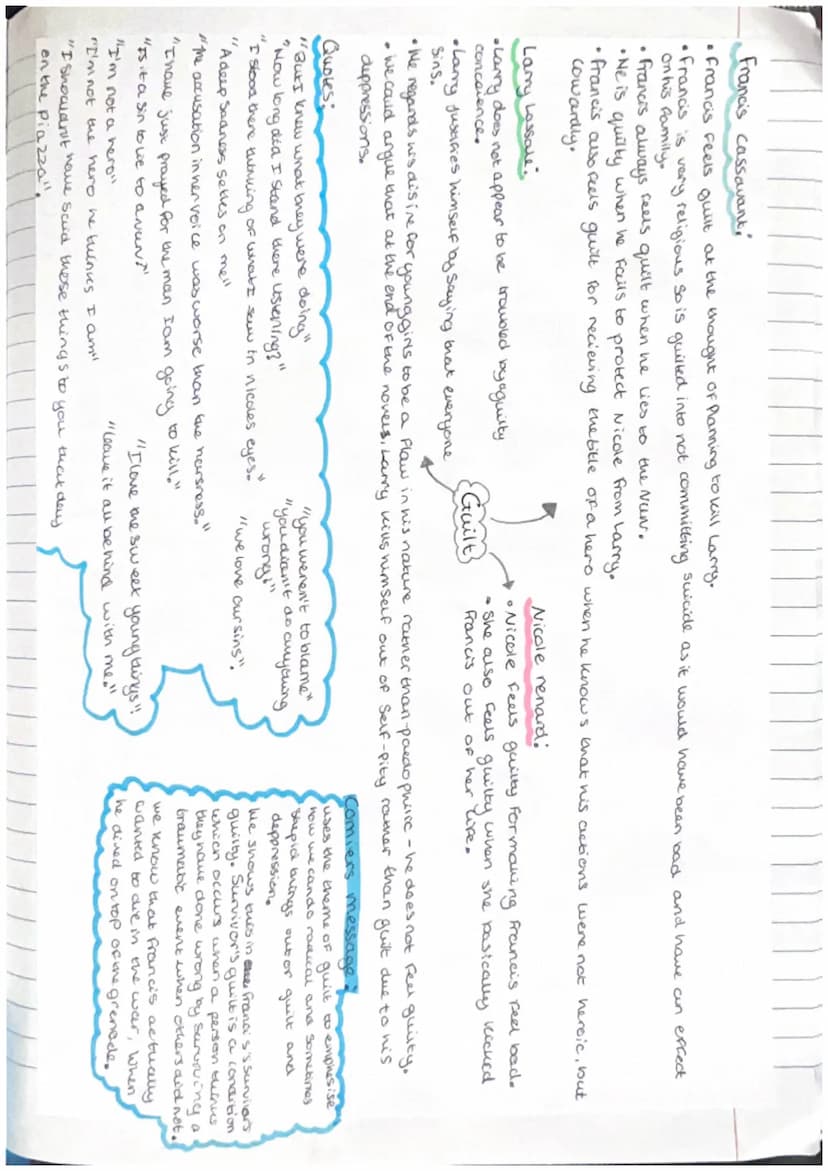 Francis Cassavant:
• Francis feels guilt at the thought of planning to kill Larry.
• Francis is very religious so is guilted into not committing suicide as it would have been bad and have an effect
on his family.
• Francis always feels guilt when he lies to the Nun.
• He is guilty when he fails to protect Nicole from Larry.
• Francis also feels guilt for recieving the title of a hero when he knows that his actions were not heroic, but
cowardly.
Guilt
Larry Lassale:
• Larry does not appear to be troubled by a guilty
concience.
• Larry justifies himself by saying that everyone
sins.
• He regards his disire for young girls to be a flaw in his nature rather than paedophile - he does not feel guilty.
• we could argue that at the end of the novels, Larry kills himself out of self-pity rather than guilt due to his
dupressions.
Nicole renard:
• Nicole feels guilty for making Francis feel bad.
• She also feels guilty when she basically kicked
Francis out of her life.
Quotes:
"But I knew what they were doing"
"How long did I stand there listening?"
"I stood there thinking of what I saw in nicoles eyes."
"A deep sadness settles on me"
"The accusation in her voice was worse than the harsness."
"I have just prayed for the man I am going to kill."
"Is it a sin to lie to a nun?"
"I'm not a hero"
"I'm not the hero he thinks I am"
"I shouldn't have said those things to you that day
on the Piazza".
"you weren't to blame"
"you didn't do anything
wrong!"
"we love our sins".
"I love the sweet young things"!
"leave it all behind with me."
Comiers message:
uses the theme of guilt to emphesise
how we can do radical and sometimes
stupid things out of guilt and
depression.
He shows this in Francis's survivors
guilty. Survivor's guilt is a condition
which occurs when a person thinks
they have done wrong by surviving a
traumatic event when others did not.
we know that Francis actually
wanted to die in the war, when
he dived on top of the grenade.